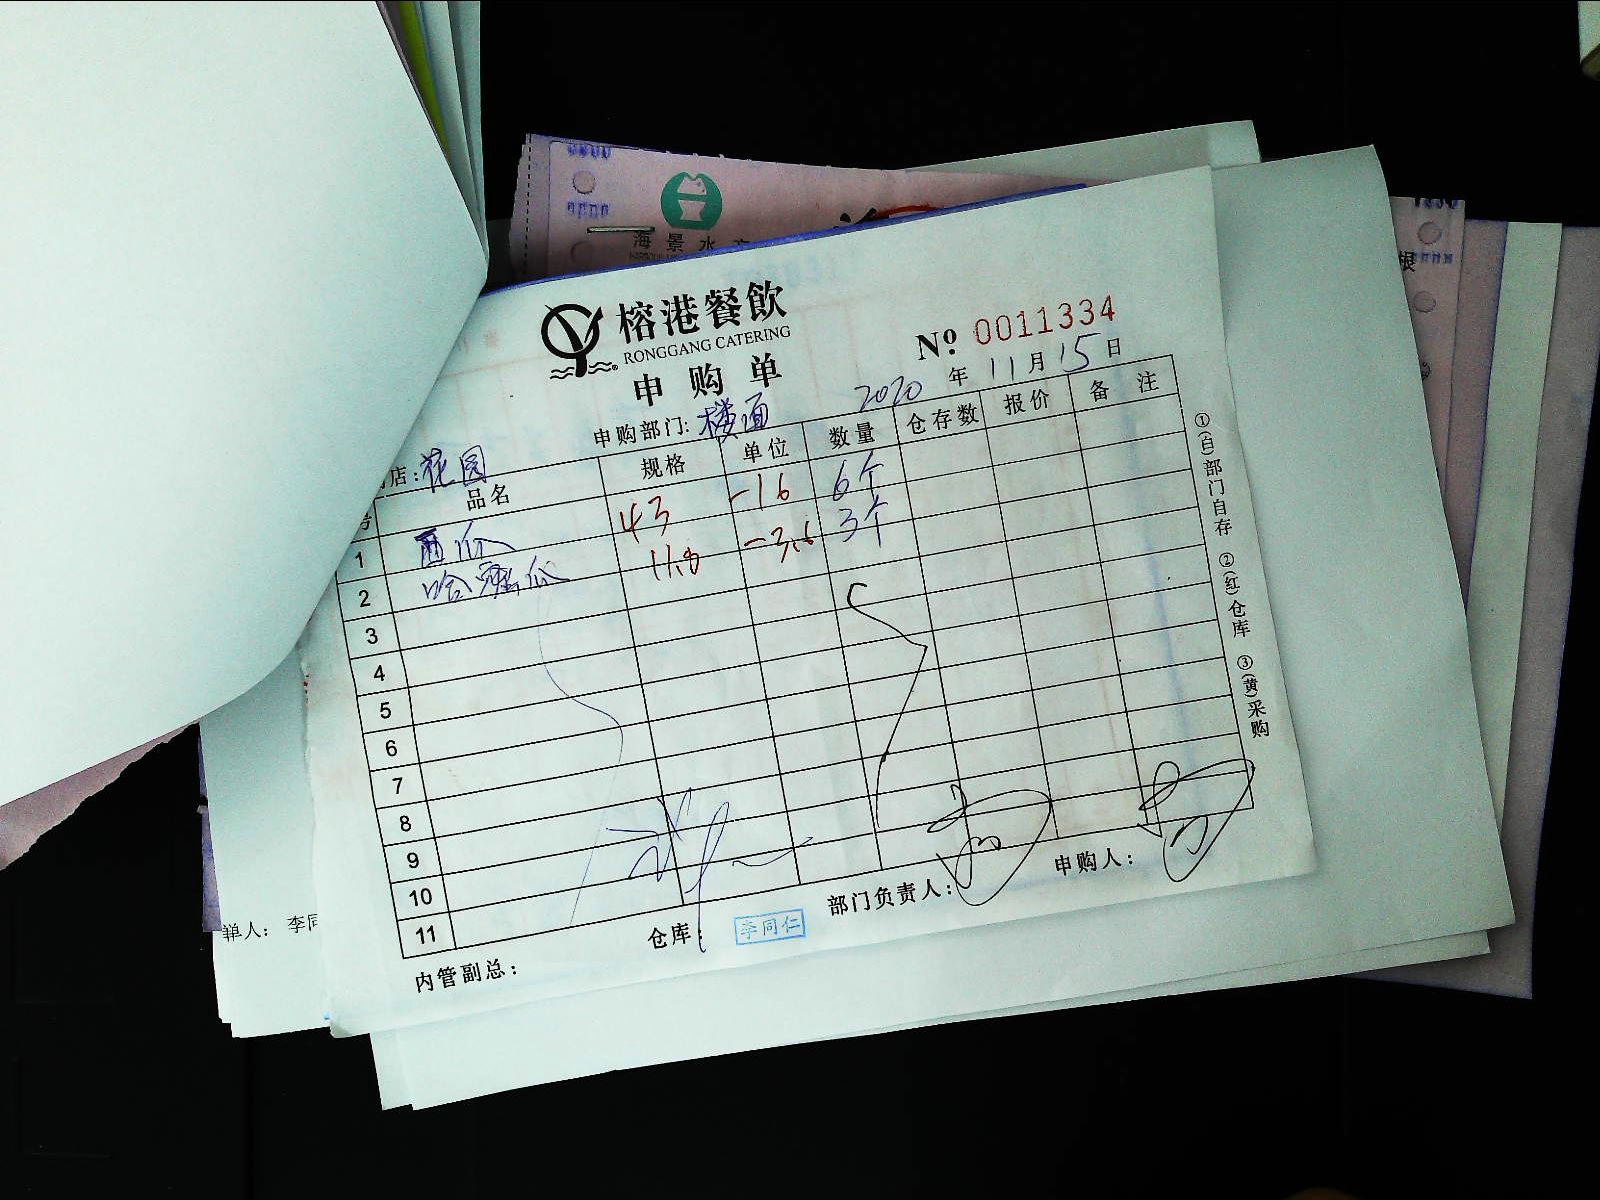 海景水
根
榕港餐飲
RONGGANG CATERING
申购单
№ 0011334
2020年11月15日
店:花园 申购部门:楼面
号 品名 规格 单位 数量 仓存数 报价 备注
1 西瓜 43 -16 6个
2 哈蜜瓜 11.8 -3.6 3个
3
4
5
6
7
8
9
10
11
①(白)部门自存 ②(红)仓库 ③(黄)采购
内管副总: 仓库: 李同仁 部门负责人: 申购人:
单人: 李同